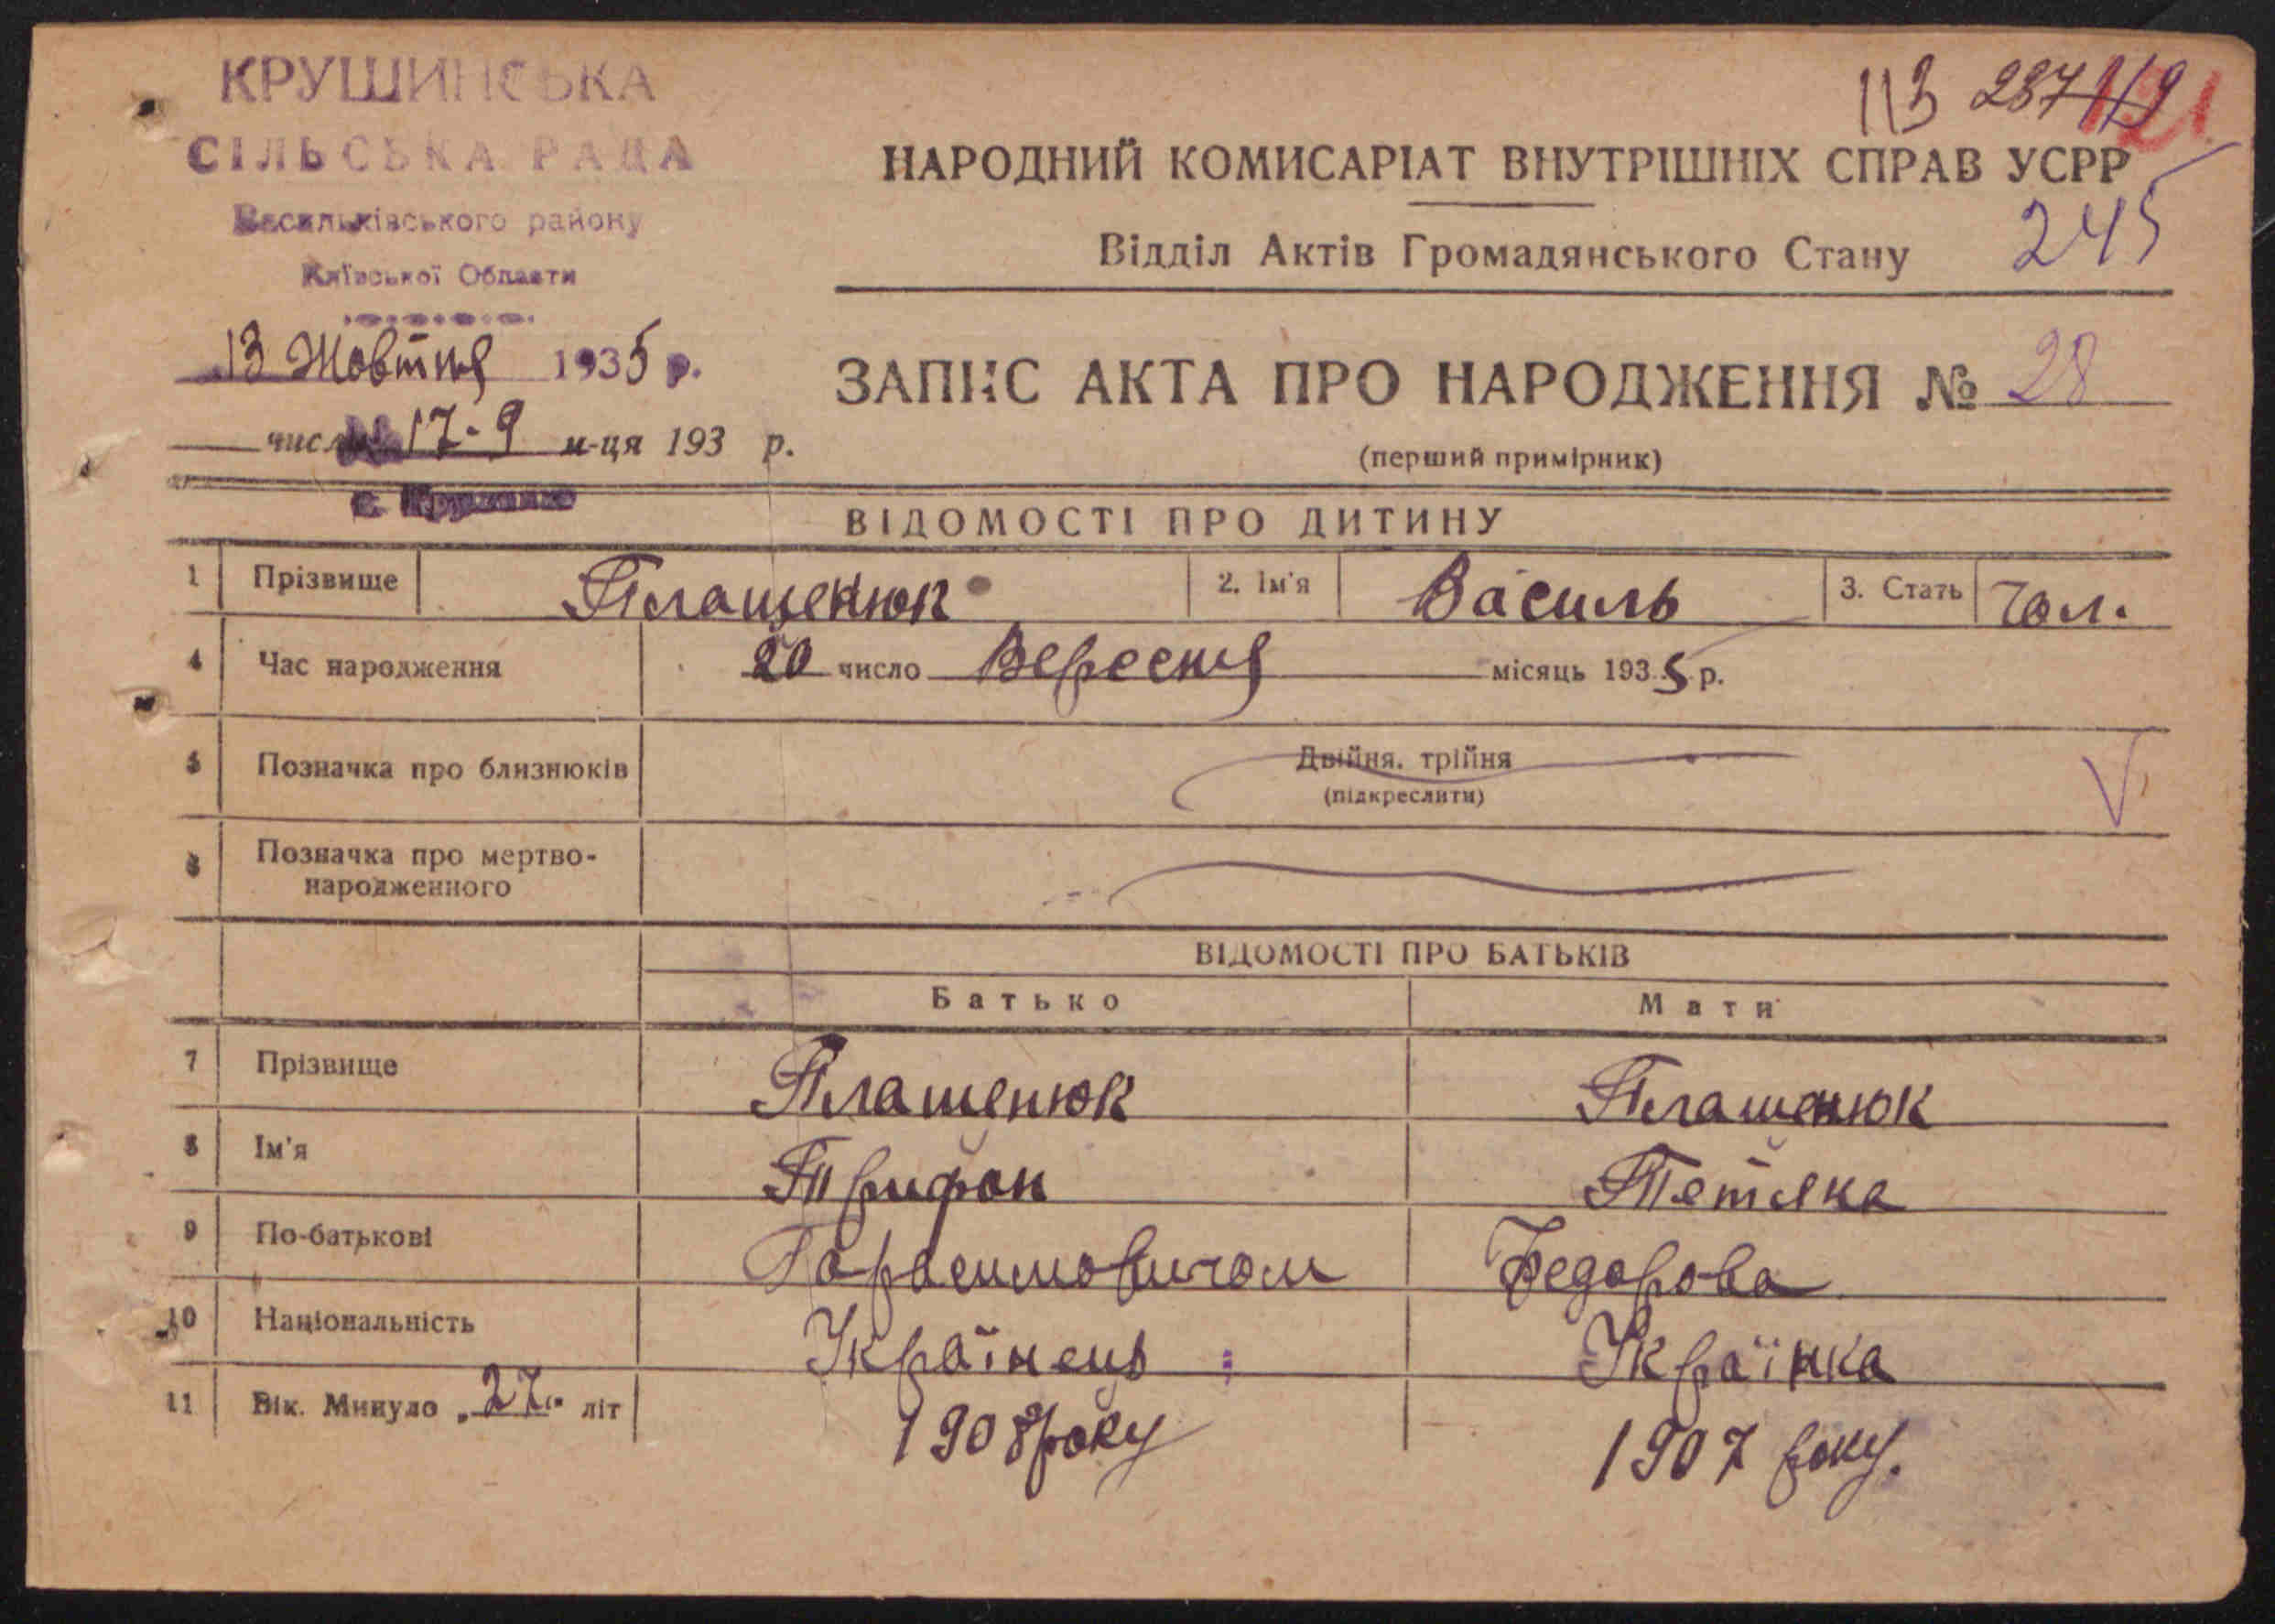 КРУШИНСЬКА
СІЛЬСЬКА РАДА
Васильківського району
Київської Области
13 Жовтня 1935 р.
число 17-9 м-ця 193 р.
с. Крушинка
113 287 119 121
НАРОДНИЙ КОМИСАРІАТ ВНУТРІШНІХ СПРАВ УСРР
Відділ Актів Громадянського Стану 245
ЗАПИС АКТА ПРО НАРОДЖЕННЯ № 28
(перший примірник)
ВІДОМОСТІ ПРО ДИТИНУ
1 Прізвище Плащенюк 2. Ім'я Василь 3. Стать Чол.
4 Час народження 20 число Вересня місяць 1935 р.
5 Позначка про близнюків Двійня, трійня
(підкреслити)
6 Позначка про мертво-
народженного
ВІДОМОСТІ ПРО БАТЬКІВ
Батько Мати
7 Прізвище Плащенюк Плащенюк
8 Ім'я Трифон Тетяна
9 По-батькові Гарасимовичом Федорова
10 Національність Українець Українка
11 Вік. Минуло „27“ літ 1908 року 1907 року.